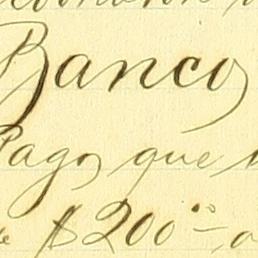 Banco
Pago que
$200⁰⁰